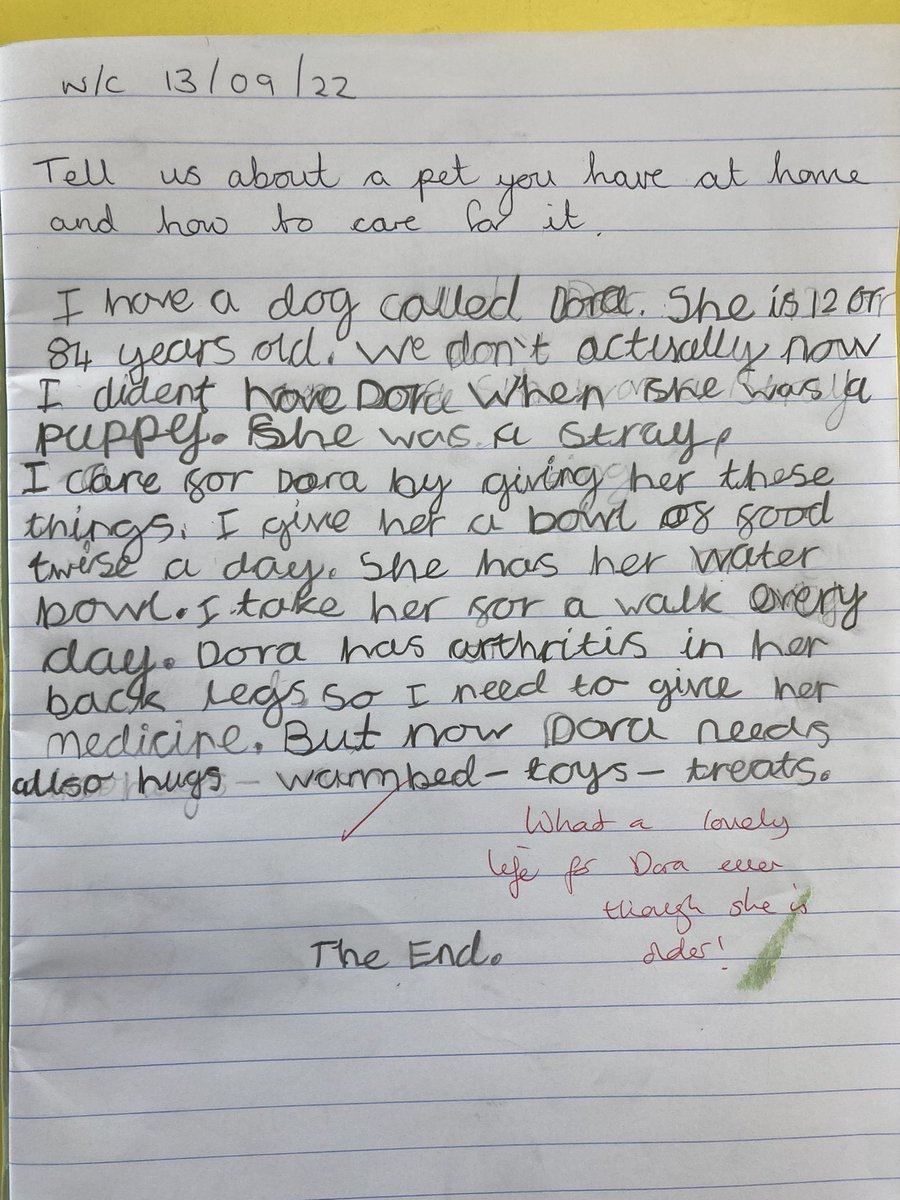 W/C 13/09/22
Tell us about a pet you have at home
and how to care for it.
I have a dog called Dora. She is 12 or
84 years old. We don't actually now
I dident have Dora when she was a
puppey. She was a stray,
I care for Dora by giving her these
things. I give her a bowl of food
twise a day. She has her water
bowl. I take her for a walk every
day. Dora has arthritis in her
back legs so I need to give her
medicine. But now Dora needs
allso hugs - warm bed - toys - treats.
What a lovely
life for Dora even
though she is
older!
The End.